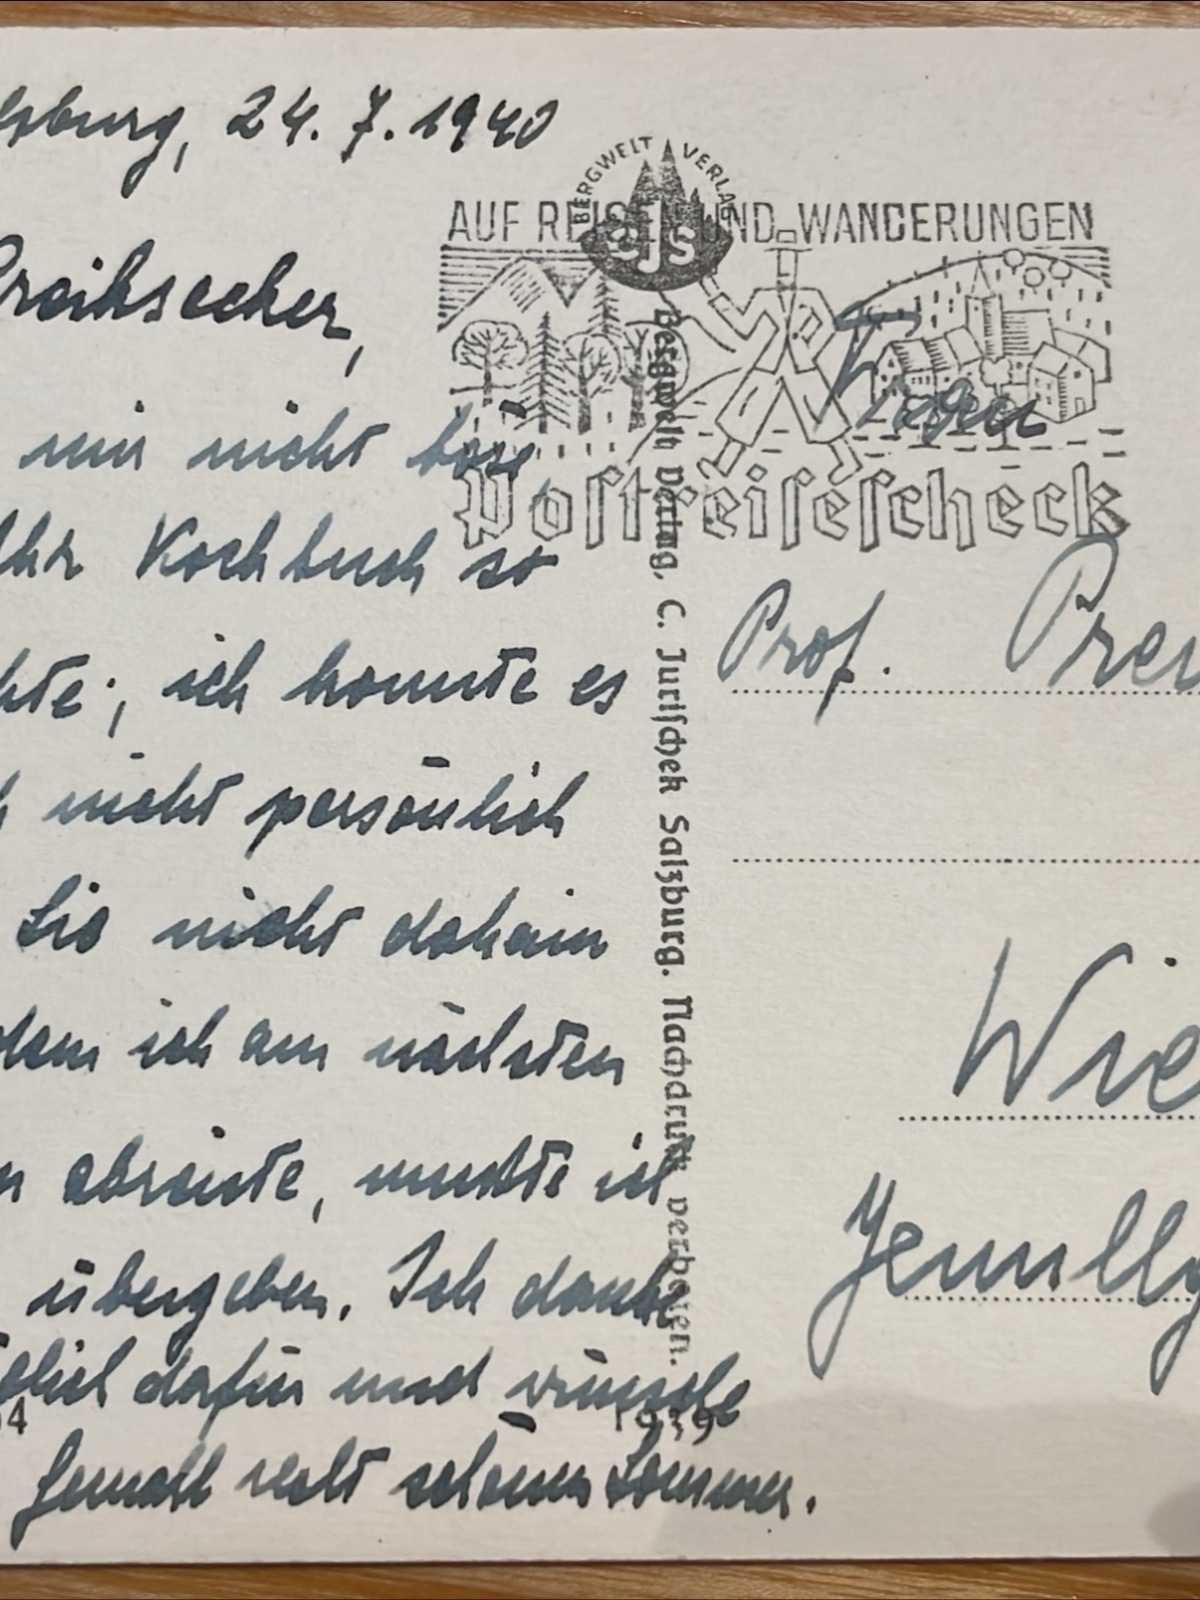 lzburg, 24. 7. 1940
Preihsecker,
mir nicht böse,
Ihr Kochbuch so
hte; ich konnte es
h nicht persönlich
Sie nicht daheim
dem ich am nächsten
en abreiste, mußte ich
übergeben. Ich danke
dafür und wünsche
Gemahl recht schönen Sommer.
BERGWELT VERLAG
cjs
AUF REISEN UND WANDERUNGEN
Postreisescheck
Bergwelt Verlag, C. Jurischek Salzburg. Nachdruck verboten.
4
1939
Frau
Prof. Prei
Wie